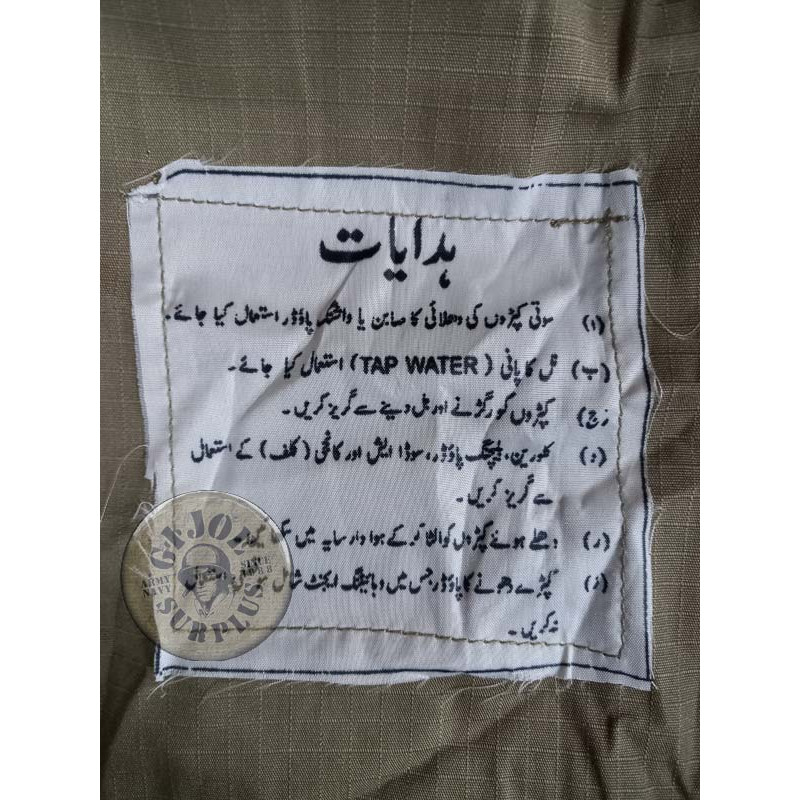 ہدایات
(ا) سوتی کپڑوں کی دھلائی کا صابن یا واشنگ پاؤڈر استعمال کیا جائے۔
(ب) نل کا پانی (TAP WATER) استعمال کیا جائے۔
(ج) کپڑوں کو رگڑنے اور بل دینے سے گریز کریں۔
(د) کلورین، بلیچنگ پاؤڈر، سوڈا ایش اور کانجی (کلف) کے استعمال
سے گریز کریں۔
(ر) دھلے ہوئے کپڑوں کو الٹا کر کے ہوا دار سایہ میں
(ز) کپڑے دھونے کا پاؤڈر جس میں وہائیٹنگ ایجنٹ شامل
نہ کریں۔
GI JOE
SURPLUS
ARMY
NAVY
SINCE